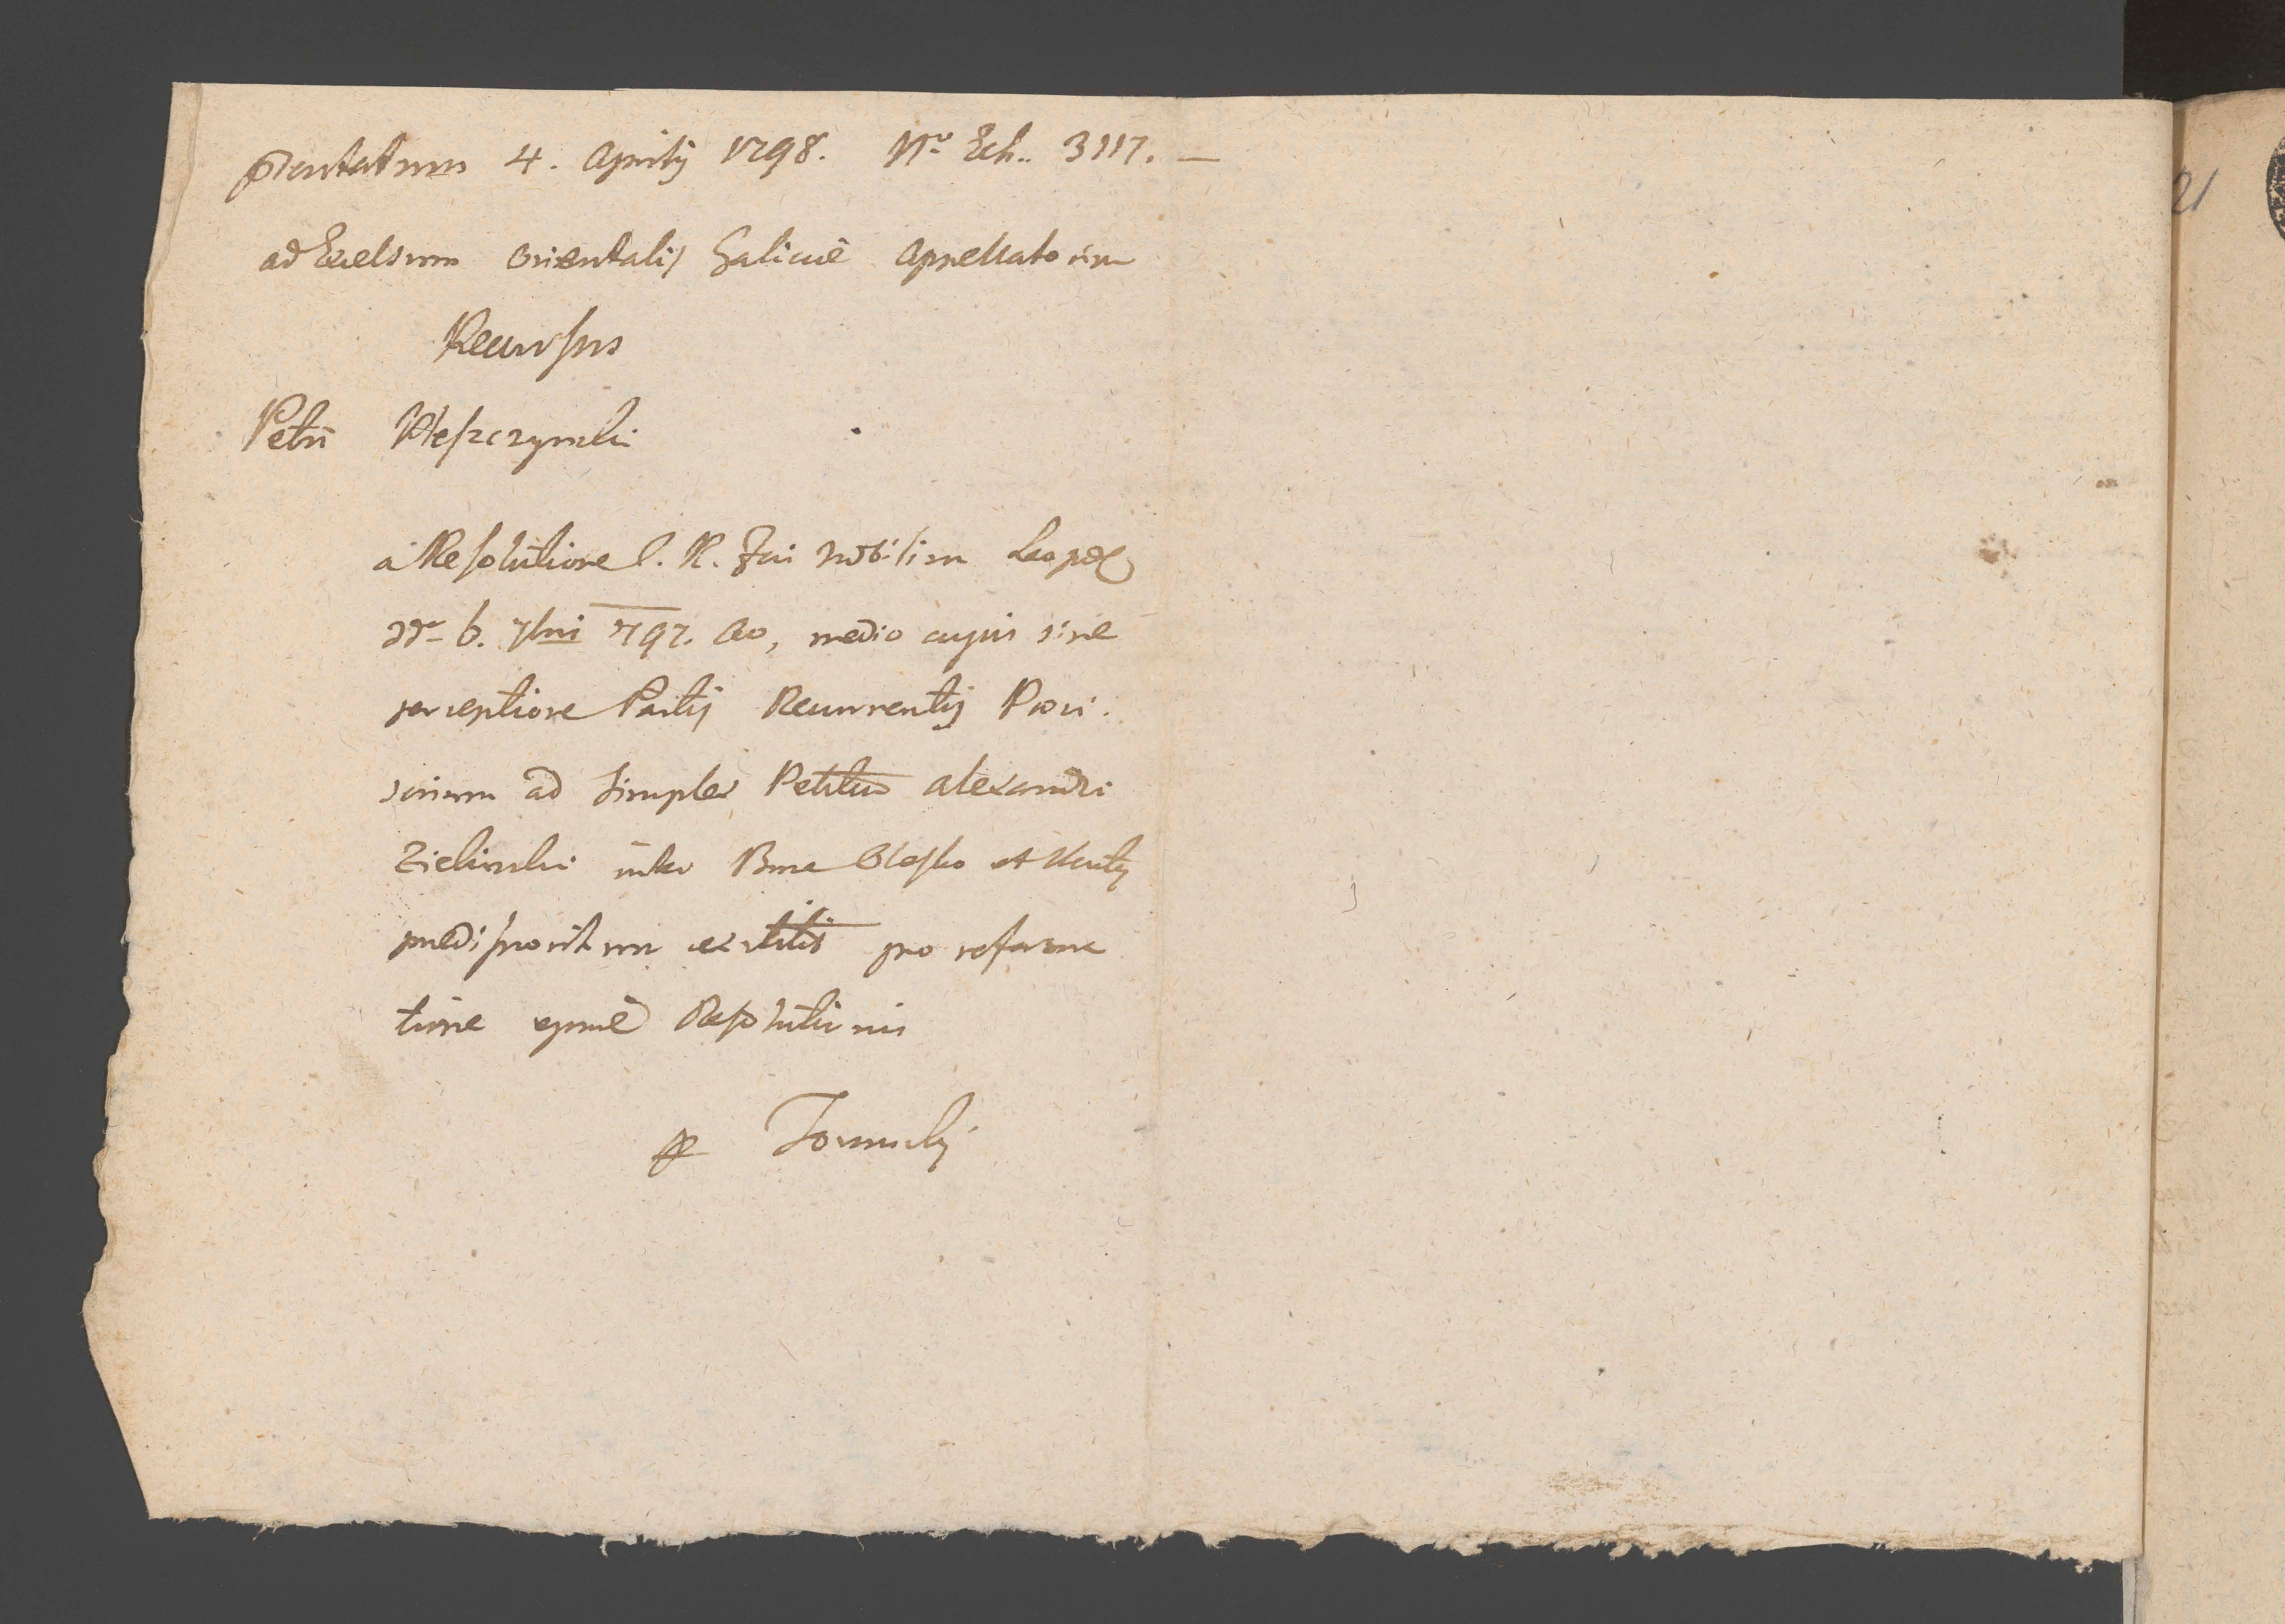 pntatum 4. Aprilis 1798. Nro Exh. 3117. —
ad Excelsum Orientalis Galiciae Appellatorium
Recursus
Petri
à Resolutione C. R. Fori Nobilium Leopol
ddto 6. 7bris 797. Ao, medio cujus sine
perceptione Partis Recurrentis Provi-
sorium ad simplex Petitum Alexandri
Zielinski inter Bona Olesko et
predispositum extitit pro reforma
tione ejusmodi Resolutionis
21